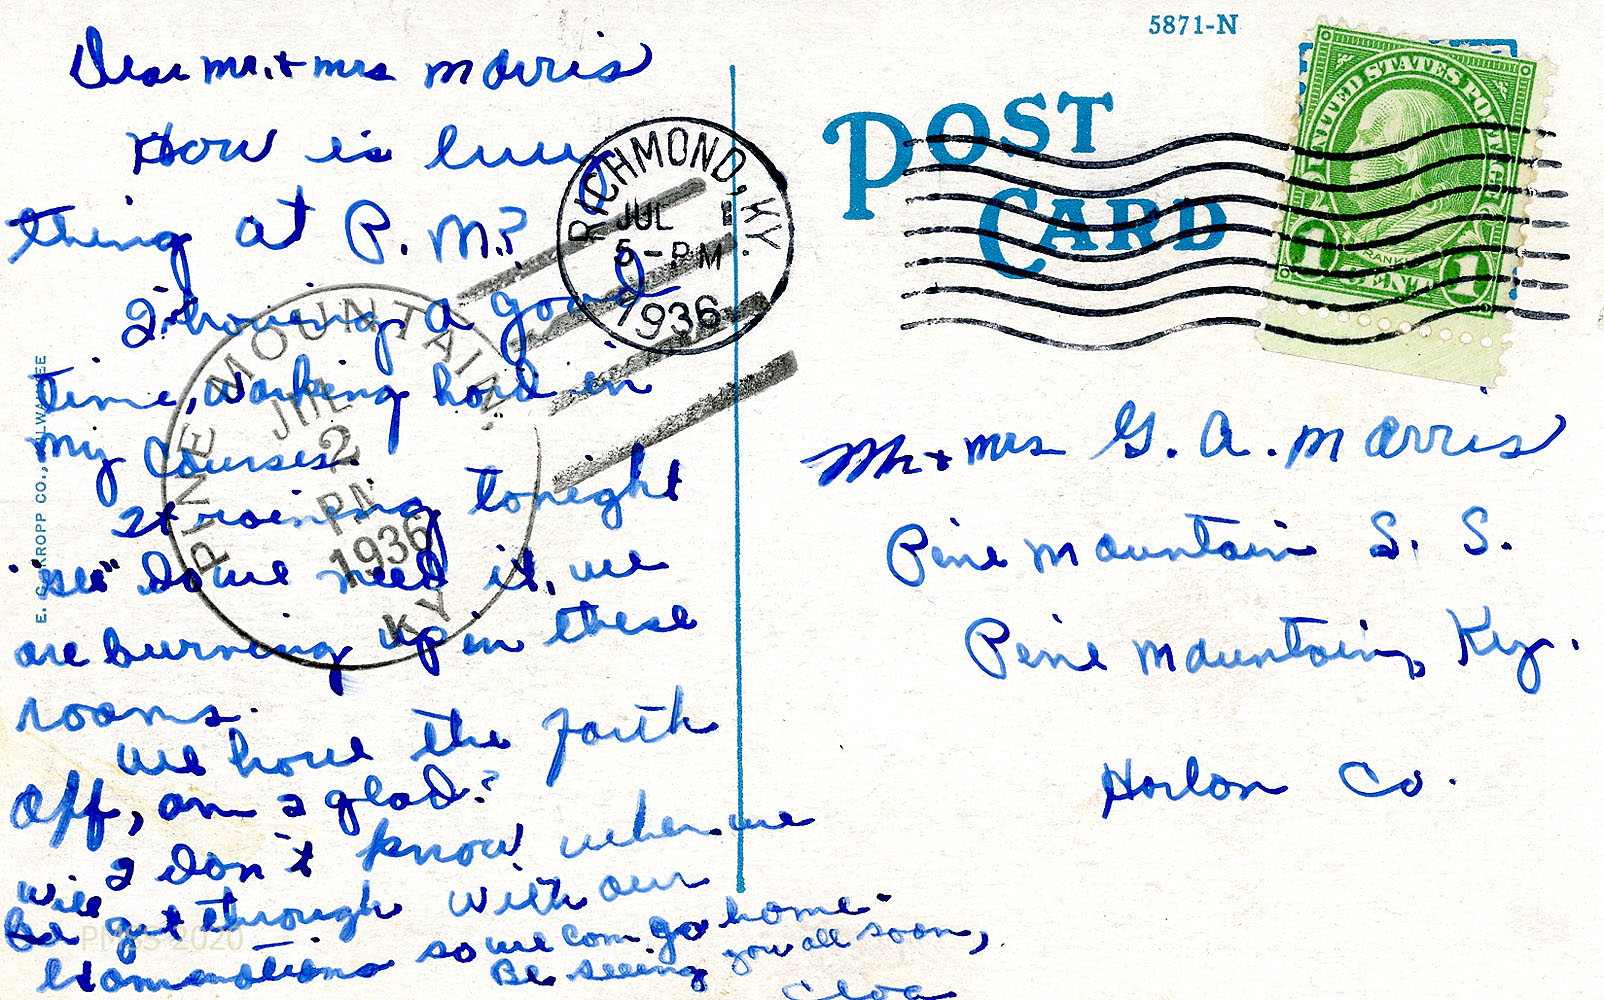 Dear Mr. + Mrs Morris
How is every
thing at P. M.?
I'm having a good
time, working hard in
my courses.
It raining tonight
"see" Do we need it, we
are burning up in these
rooms.
We have the forth
off, am I glad.
I don't know when we
will get through with our
be
Examanations so we can go home.
Be seeing you all soon,
Cloa
5871-N
POST
CARD
UNITED STATES POSTAGE
FRANKLIN
1 CENT 1
RICHMOND, KY.
JUL 1
5-PM
1936
PINE MOUNTAIN
JUL
2
PM
1936
KY
Mr + Mrs G. A. Morris
Pine Mountain S. S.
Pine Mountain, Ky.
Harlan Co.
E. C. KROPP CO., MILWAUKEE
PMSS 2020